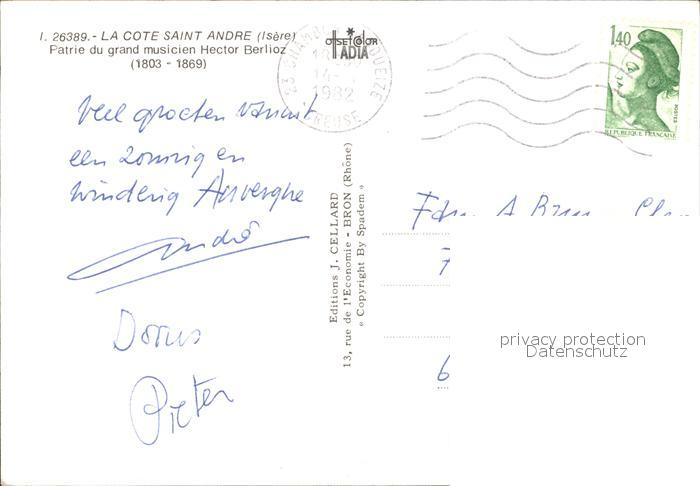 I. 26389.- LA COTE SAINT ANDRE (Isère)
Patrie du grand musicien Hector Berlioz
(1803 - 1869)
OFFSET COLOR
IADIA
1982
CREUSE
1,40
POSTES
REPUBLIQUE FRANÇAISE
Veel groeten vanuit
een zonnig en
winderig Auvergne
André
Dorus
Pieter
Editions J. CELLARD
13, rue de l'Economie - BRON (Rhône)
« Copyright By Spadem »
Fam. A
6
privacy protection
Datenschutz